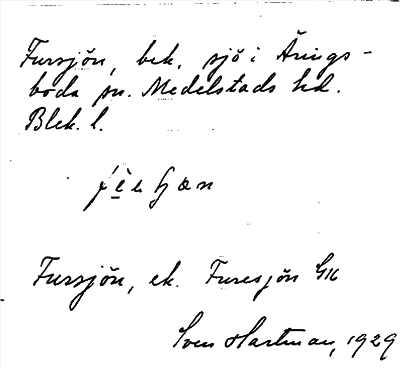 Fursjön, bek. sjö i Årings-
boda sn. Medelstads hd.
Blek. l.
Fursjön, ek. Furesjön GK
Sven Hartman, 1929